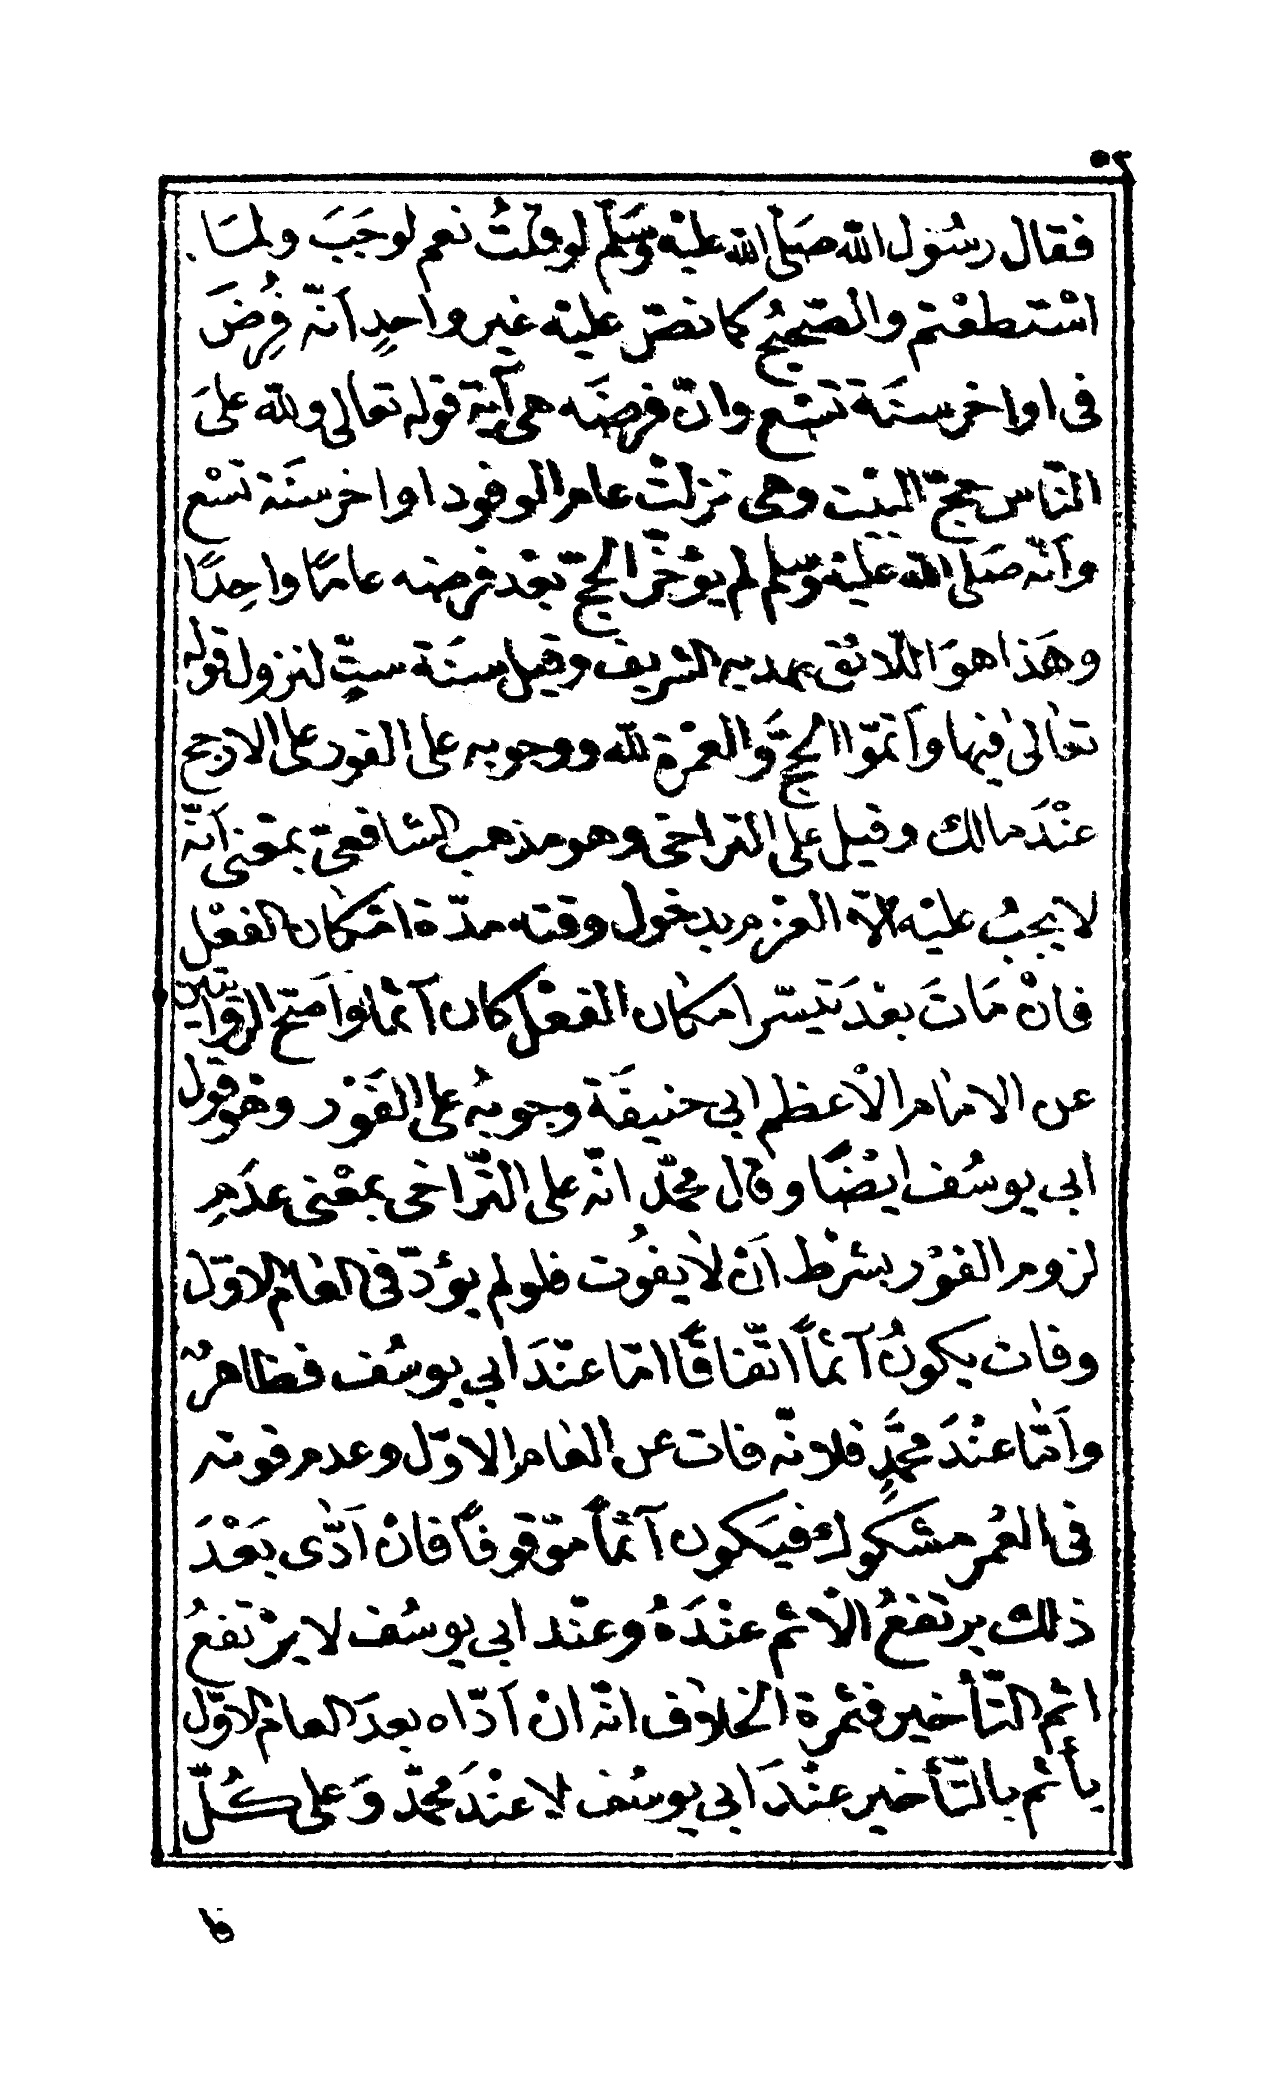 ٢٠
فقال رسُول الله صَلى الله عليْه وَسَلم لو قلتُ نعم لوجَبَ ولمَا
اسْتطعْتم والصّحِيحُ كما نصّ عليْه غير واحدٍ اَنّه فِرُضَ
فى اواخر سنَة تسْع وانّ فرضَه هى آية قوله تعالى ولله علىَ
النّاس حجّ البيْت وهى نزلتْ عام الوفود اواخر سنَة تسْع
واَنّه صَلى الله عَليْه وسَلم لم يؤخّر الحجّ بعْد فرضه عامًا واحِدًا
وهَذا هوَ اللّائق بهديه الشريف وقيل سنَة ستٍّ لنزول قوله
تعَالىٰ فيْها واَتمّوا الحجّ وَالعمْرة لله ووجوبه على الفور على الارجح
عنْدَ مالك وقيل على التراخى وهو مذهب الشافعىّ بمعْنى اَنّه
لا يجبُ عليْه الاّ العزم بدخول وقته مدّة امْكان الفعْل
فانْ مَاتَ بعْدَ تيسّر امكان الفعْل كان آثماً واَصَحّ الروايتين
عن الامام الاْعظم ابى حنيفَة وجوبُه على الفَوْر وهو قول
ابى يوسُف ايْضًا وقال محمّد انّه على التّراخى بمعْنى عدَمِ
لزوم الفوْر بشرْط اَنْ لا يفُوت فلو لم يؤدّ فى العام الاوّل
وفات يكونُ آثماً اتّفاقًا امّا عنْدَ ابى يوسُف فظاهرٌ
واَمّا عنْدَ محمَّدٍ فلانّه فات عن العام الاوّل وعدم فوته
فى العُمر مشكوك فيَكون آثماً موْقوفاً فانْ اَدّى بعَدْدَ
ذلك يرتفعُ الاْثم عنْدَهُ وعنْد ابى يوسُف لا يرْتفعُ
اثم التّأخير فثمرة الخلاف انّه انْ اَدّاه بعدَ العام الاوّل
يأثم بالتّأخير عنْدَ ابى يوسُف لا عنْدَ محمّد وَعلى كُلّ